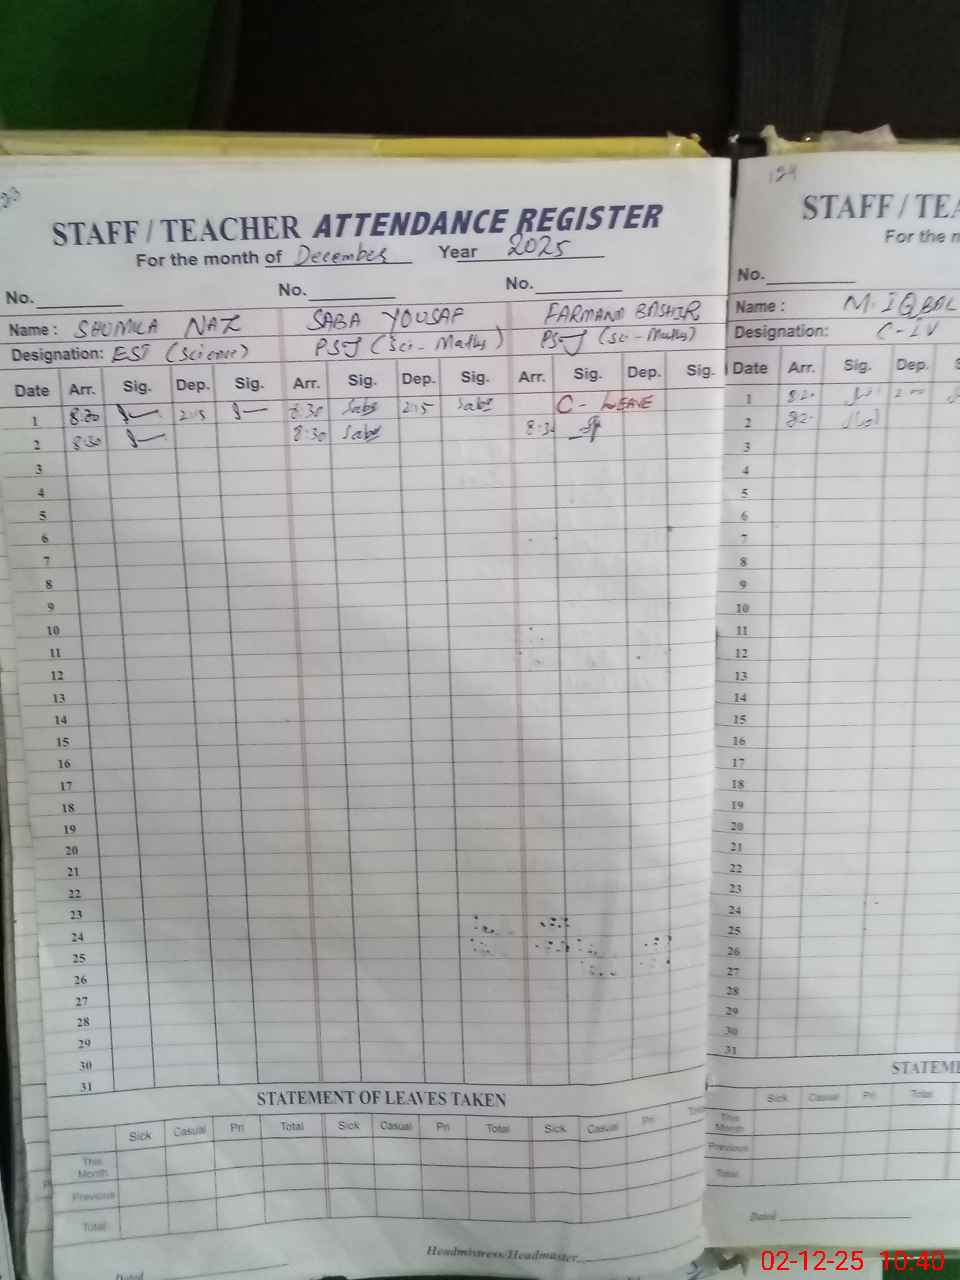 STAFF / TEACHER ATTENDANCE REGISTER
For the month of December Year 2025
No. No. No.
Name: SHUMILA NAZ SABA YOUSAF FARMAN BASHIR
Designation: EST (Science) PST (Sci - Maths) PST (Sci - Maths)
Date Arr. Sig. Dep. Sig. Arr. Sig. Dep. Sig. Arr. Sig. Dep. Sig.
1 8:30 2:15 8:30 Saba 2:15 Saba C - LEAVE
2 8:30 8:30 Saba 8:30
3
4
5
6
7
8
9
10
11
12
13
14
15
16
17
18
19
20
21
22
23
24
25
26
27
28
29
30
31
STATEMENT OF LEAVES TAKEN
Sick Casual Pri Total Sick Casual Pri Total Sick Casual Pri Total
This Month
Previous
Total
Headmistress/Headmaster
Dated
184
STAFF / TEA
For the m
No.
Name: M. IQBAL
Designation: C-IV
Date Arr. Sig. Dep. S
1 820 200
2 820
3
4
5
6
7
8
9
10
11
12
13
14
15
16
17
18
19
20
21
22
23
24
25
26
27
28
29
30
31
STATEME
Sick Casual Pri Total
This Month
Previous
Total
Dated
02-12-25 10:40